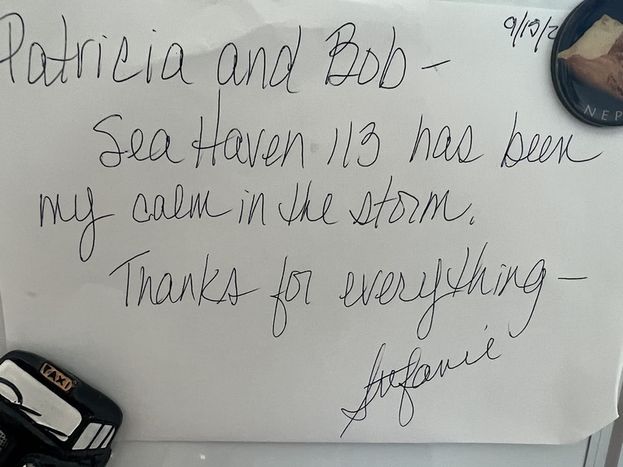 9/13/2
Patricia and Bob-
Sea Haven 113 has been
my calm in the storm.
Thanks for everything-
Stefanie
TAXI
NEP